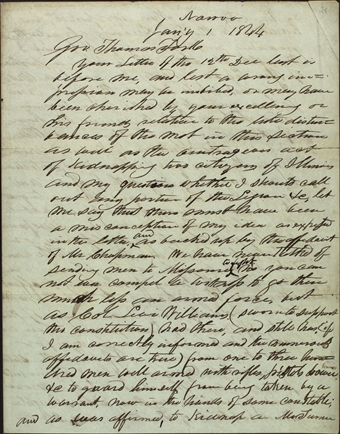 Nauvoo
Jan'y 1 1844
Gov. Thomas Ford
Your letter of the 12th Dec last is
before me, and lest a wrong im-
pression may be imbibed, or may have
been cherished by your excellency or
his friends relative to the late distur-
bances of the mob in this section
as well as the outrageous act
of kidnapping two citizens of Illinois
and my question whether I should call
out any portion of the Legion &c, let
me say that there must have been
a misconception of my idea as expressed
in the letter, and as backed up by the affidavit
of Mr Chapman We have never talked of
sending men to Missouri, you can
not even compel a witness to go there
much less you armed forces, but
as Col. Levi Williams (sworn to support
the constitution) had there, and still has (if
I am correctly informed and the numerous
affidavits are true) from one to three hun-
dred men well armed with rifles, pistols
&c to guard himself from being taken by a
warrant, now in the hands of some constable;
and as was affirmed, to kidnap a Mormon